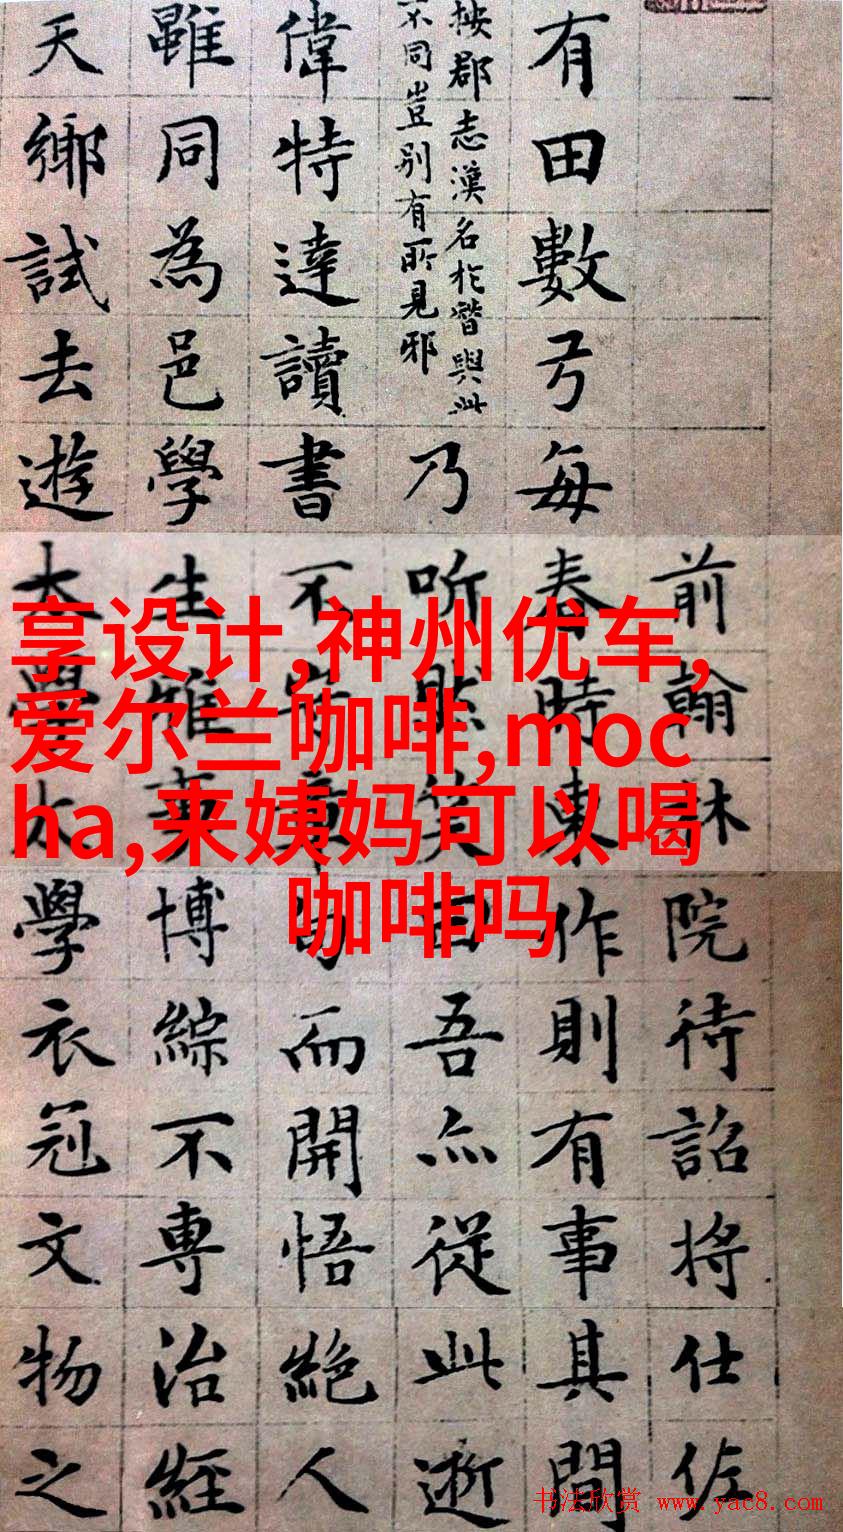 前翰林院待詔將仕佐
有田數弓每春時東作則有事其間
按郡志漢名於潛與此
不同豈别有所見邪
乃听然笑曰吾亦從此逝
偉特達讀書不守章句而開悟絕人
雖同為邑學生雅事博綜不専治經
天鄉試去遊太學太學衣冠文物之
享设计,神州优车,
爱尔兰咖啡,moc
ha,来姨妈可以喝
咖啡吗
书法欣赏 www.yac8.com